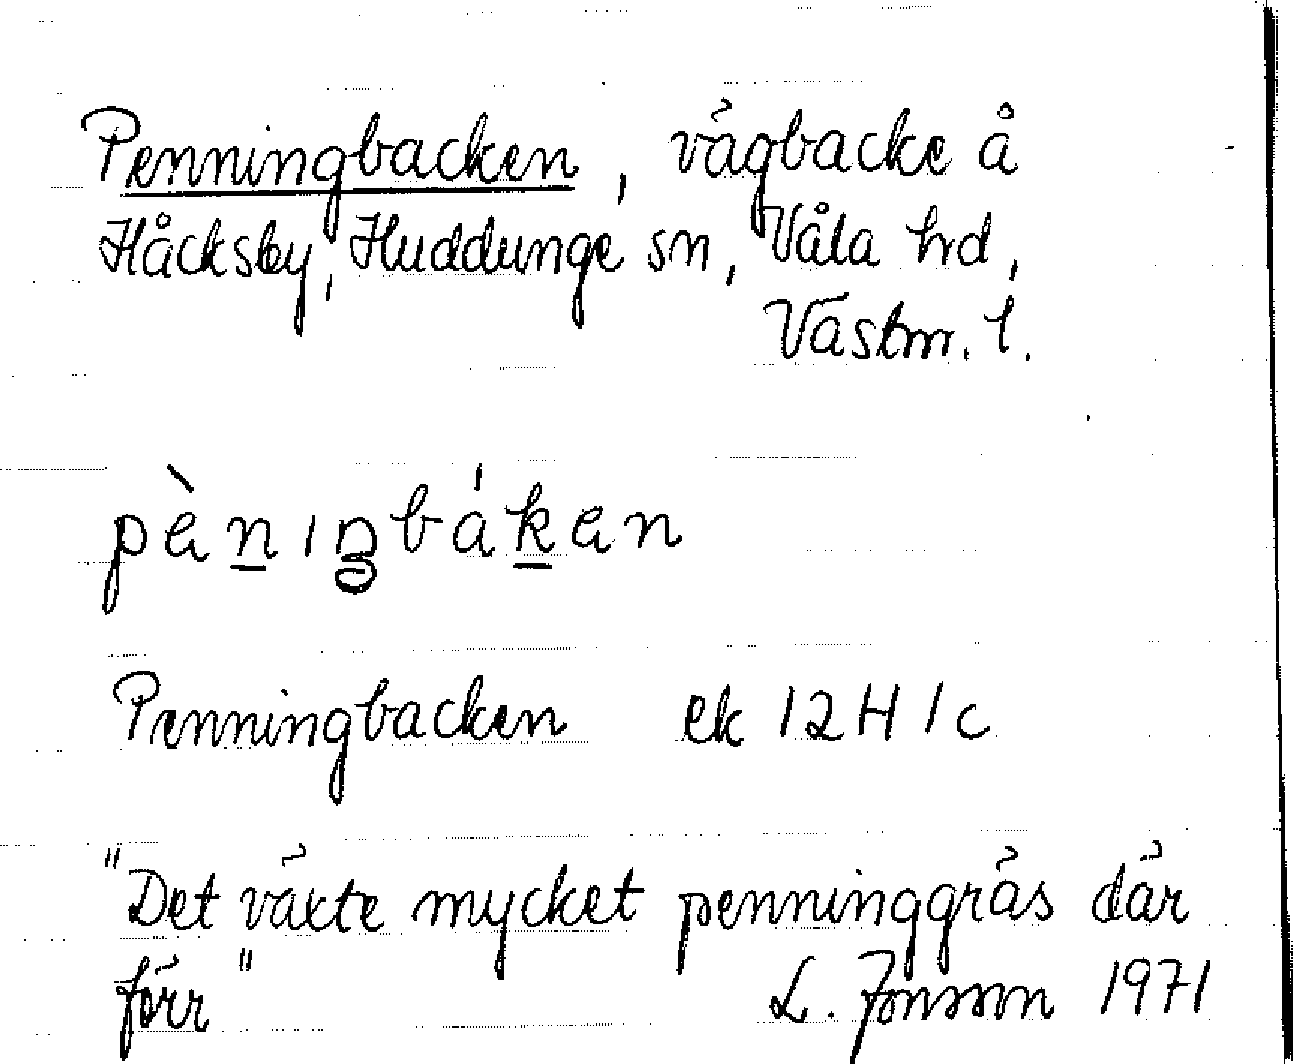 Penningbacken, vägbacke å
Håcksby, Huddunge sn, Våla hrd,
Västm. l.
pènıŋbákan
Penningbacken ek 12H 1c
"Det växte mycket penninggräs där
förr" L. Jonsson 1971